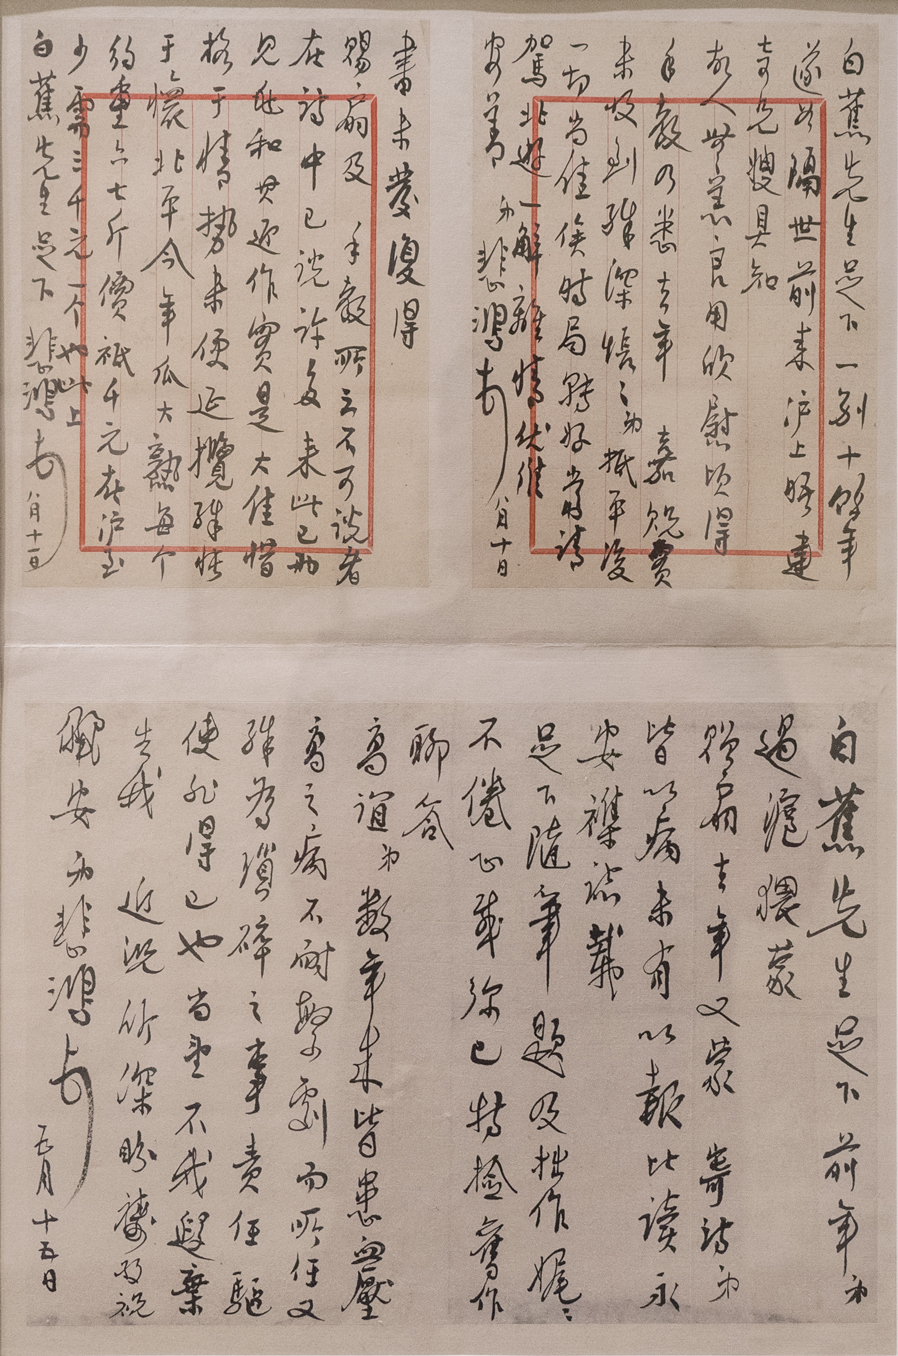 白蕉先生足下一别十餘年
遂如隔世前来沪上晤建
奇兄嫂具知
故人無恙良用欣慰頃得
手教乃悉去年 嘉貺費
未收到殊深悵悵弟抵平後
一切尚佳俟時局轉好當請
駕北遊一解離情伏惟
安善 弟悲鴻 八月十日
書未發復得
賜扇及 手教所言不可談者
在詩中已談許多来此已
見
柊于情勢未便延攬殊悵
于懷北平今年瓜大熟每个
約重六七斤價祗千元在沪至
少需三千元一个也此上
白蕉先生足下 悲鴻 八月十一日
白蕉先生足下前年弟
過滬猥蒙
贈扇去年又蒙 寄詩弟
皆以病未有以報比讀永
安襍誌載
足下隨筆題及拙作娓娓
不倦心感弥已特檢舊作
聊答
高誼弟數年来皆患血壓
高之病不耐繁劇而所任又
殊為瑣碎之事責任驅
使非得已也尚望不我遐棄
告我 近況所深盼禱敬祝
儷安 弟悲鴻 五月十五日